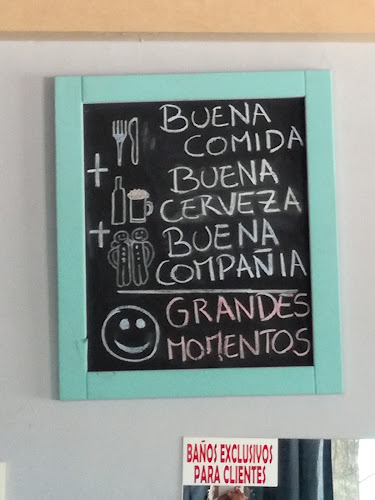 BUENA
COMIDA
+
BUENA
CERVEZA
+
BUENA
COMPAÑIA
GRANDES
MOMENTOS
BAÑOS EXCLUSIVOS
PARA CLIENTES